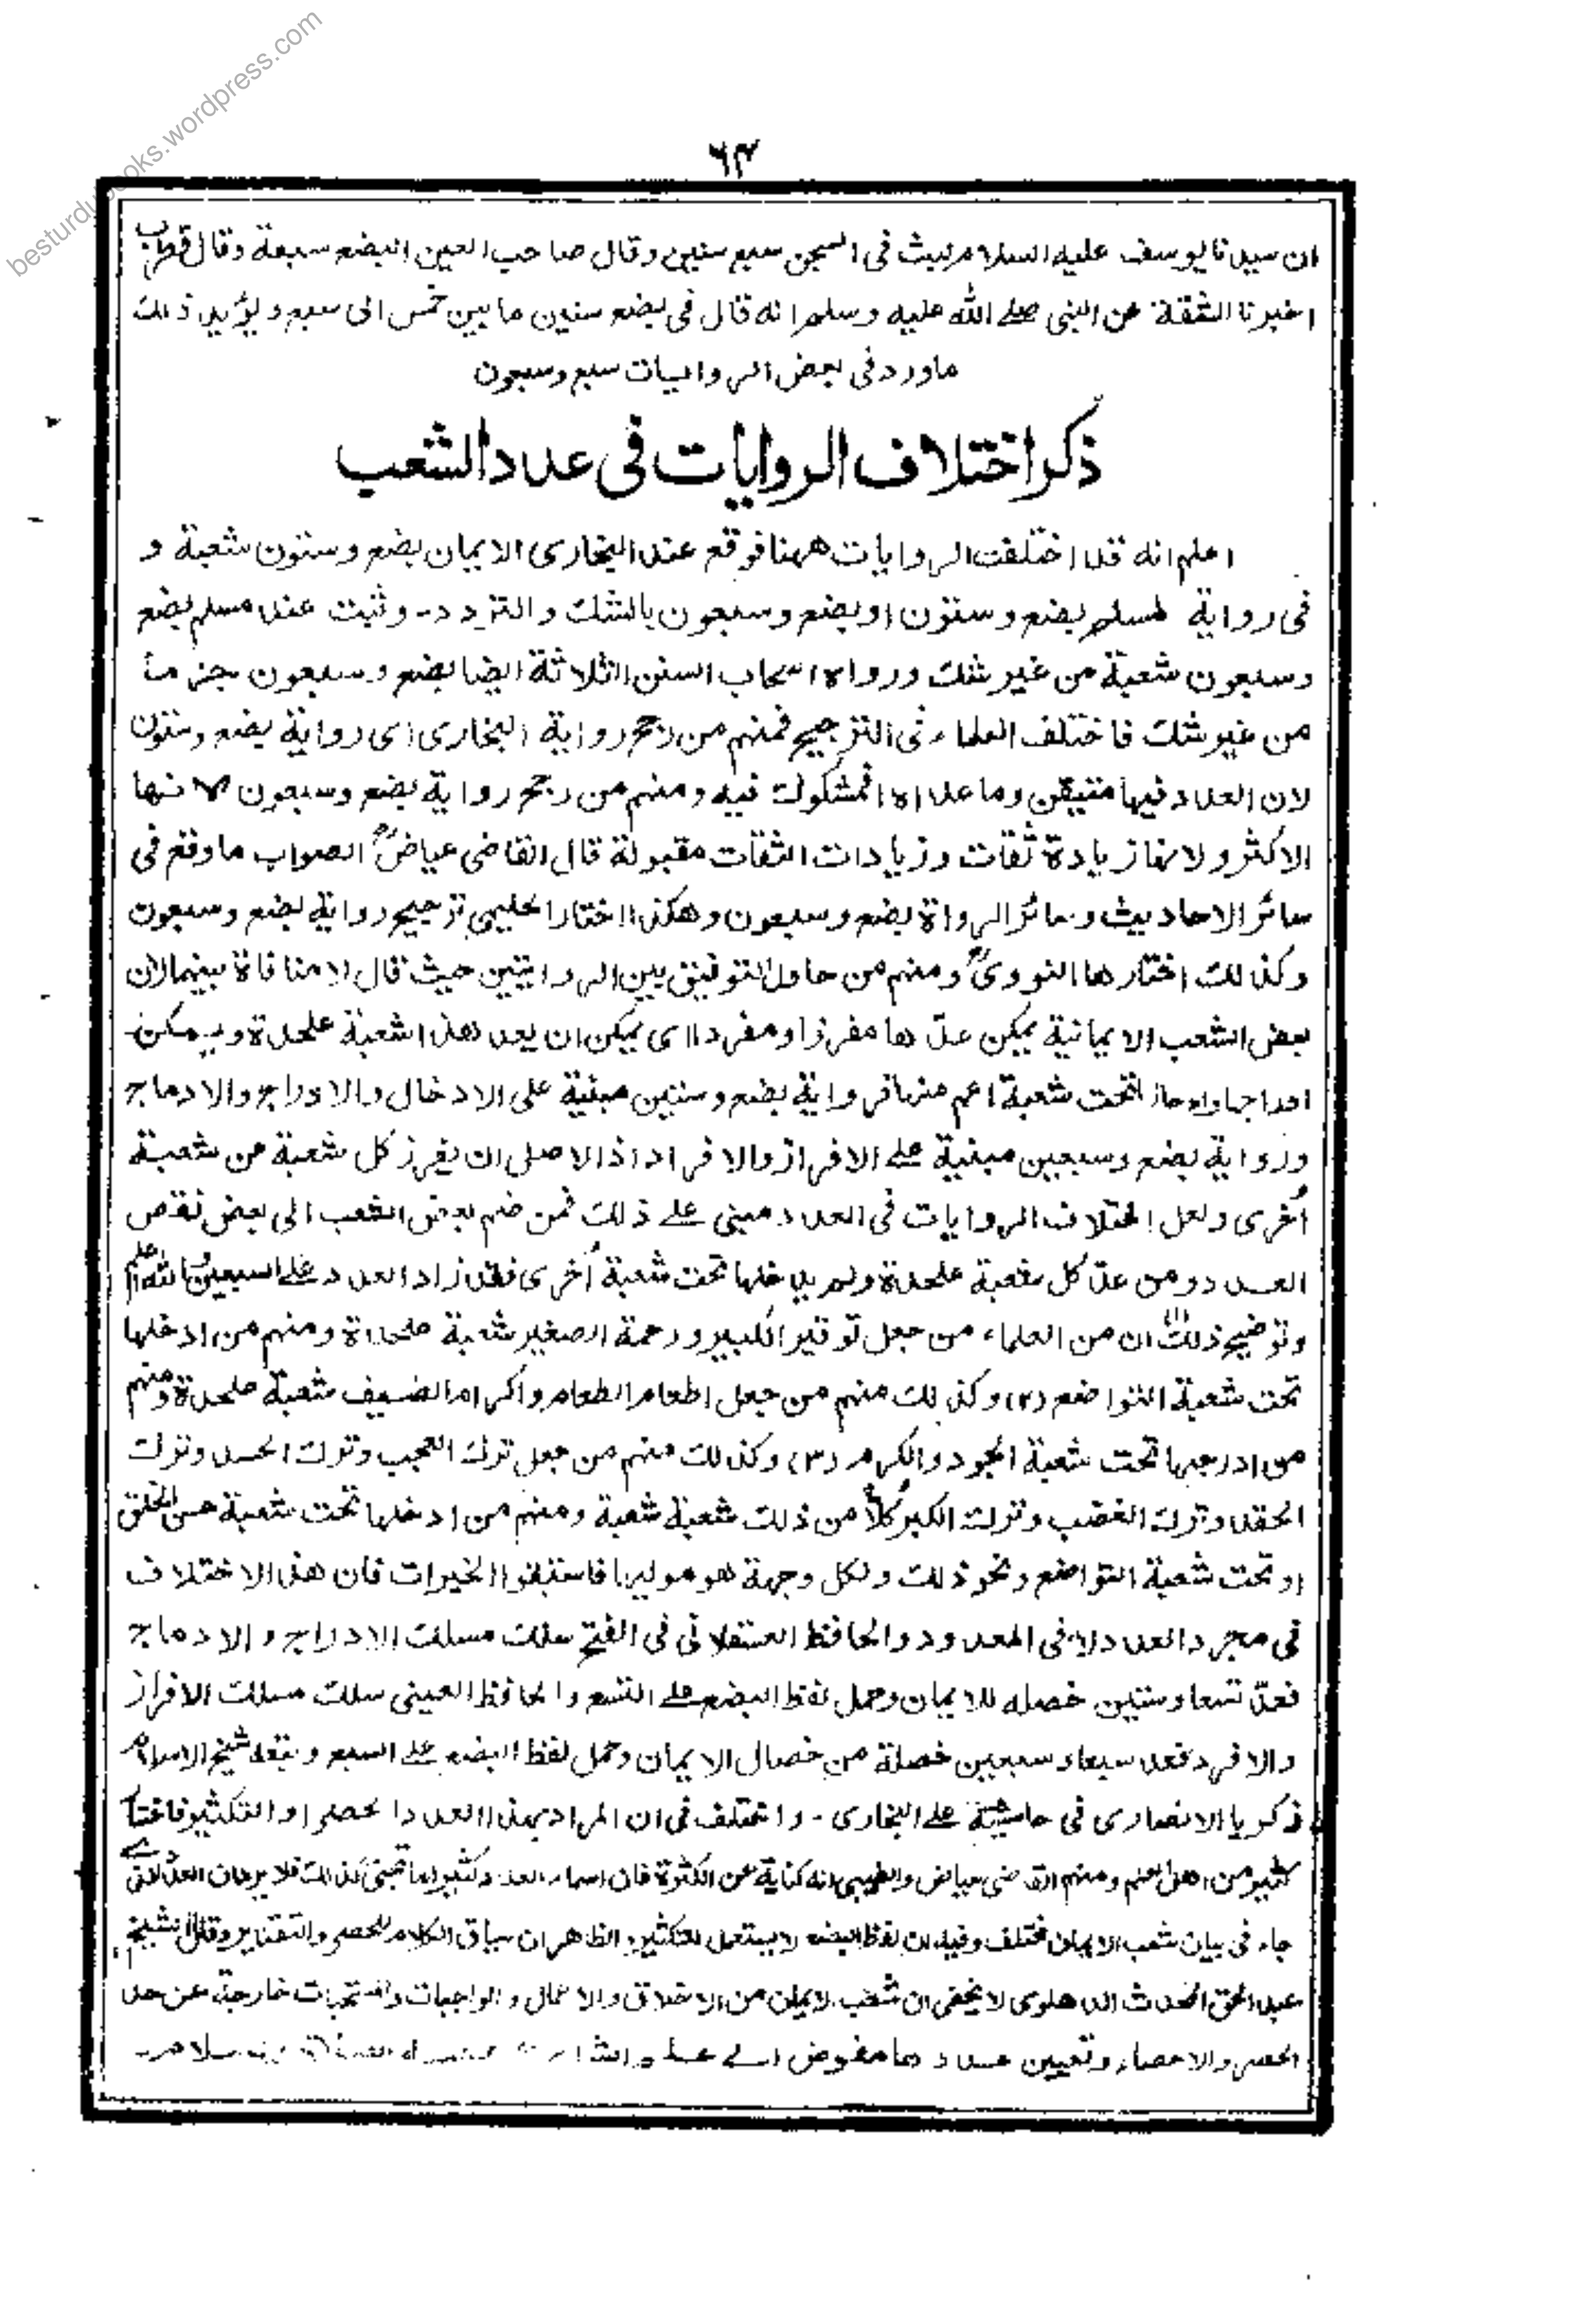 besturdubooks.wordpress.com
٦٣
ان سيدنا يوسف عليه السلام لبث فى السجن سبع سنين وقال صاحب العين البضع سبعة وقال قطرب
اخبرنا الثقة عن النبى صلے الله عليه وسلم انه قال فى بضع سنين ما بين خمس الى سبع ويؤيد ذلك
ماورد فى بعض الروايات سبع وسبعون
ذكر اختلاف الروايات فى عدد الشعب
اعلم انه قد اختلفت الروايات ههنا فوقع عند البخارى الايمان بضع وستون شعبة و
فى رواية لمسلم بضع وستون او بضع وسبعون بالشك والتردد- وثبت عند مسلم بضع
وسبعون شعبة من غير شك ورواه اصحاب السنن الثلاثة ايضا بضع وسبعون جزما
من غير شك فاختلف العلماء فى الترجيح فمنهم من رجح رواية البخارى اى رواية بضع وستون
لان العدد فيها متيقن وما عداه فمشكوك فيه ومنهم من رجح رواية بضع وسبعون لانها
الاكثر ولانها زيادة ثقات وزيادات الثقات مقبولة قال القاضى عياضؒ الصواب ما وقع فى
سائر الاحاديث وسائر الرواة بضع وسبعون وهكذا اختار الحليمى ترجيح رواية بضع وسبعون
وكذلك اختارها النووىؒ ومنهم من حاول التوفيق بين الروايتين حيث قال لا منافاة بينهما لان
بعض الشعب الايمانية يمكن عدّها مفرزا ومفردا اى يمكن ان يعد هذا شعبة علحدة ويمكن
ادراجها وادماجها تحت شعبة اعم منها فرواية بضع وستين مبنية على الادخال والادراج والادماج
ورواية بضع وسبعين مبنية علے الافراز والافراد اذ الاصل ان يفرز كل شعبة عن شعبة
أخرى ولعل اختلاف الروايات فى العدد مبنى علے ذلك فمن ضم بعض الشعب الى بعض نقص
العدد ومن عدّ كل شعبة علحدة ولم يدخلها تحت شعبة أخرى فقد زاد العدد علے السبعين والله اعلم
وتوضيح ذلك ان من العلماء من جعل توقير الكبير ورحمة الصغير شعبة علحدة ومنهم من ادخلها
تحت شعبة التواضع (٢) وكذلك منهم من جعل اطعام الطعام واكرام الضيف شعبة علحدة ومنهم
من ادرجها تحت شعبة الجود والكرم (٣) وكذلك منهم من جعل ترك العجب وترك الحسد وترك
الحقد وترك الغضب وترك الكبر كلاً من ذلك شعبة شعبة ومنهم من ادخلها تحت شعبة حسن الخلق
او تحت شعبة التواضع ونحو ذلك ولكل وجهة هو موليها فاستبقوا الخيرات فان هذا الاختلاف
فى مجرد العدد لا فى المعدود والحافظ العسقلانى فى الفتح سلك مسلك الادراج والادماج
فعدّ تسعا وستين خصلة للايمان وحمل لفظ البضع علے التسع والحافظ العينى سلك مسلك الافراز
والافراد فعد سبعا وسبعين خصلة من خصال الايمان وحمل لفظ البضع علے السبع وتبعه شيخ الاسلام
زكريا الانصارى فى حاشيته علے البخارى - واختلف فى ان المراد بهذا العدد الحصر او التكثير فاختار
كثير من اهل العلم ومنهم القاضى عياض والطيبى انه كناية عن الكثرة فان اسماء العدد كثيرا ما تجئ كذلك فلا يرد ان العدد الذى
جاء فى بيان شعب الايمان مختلف وفيه ان لفظ البضع لا يستعمل للتكثير والظاهر ان سياق الكلام للحصر والتقدير وقال الشيخ
عبد الحق المحدث الدهلوى لا يخفى ان شعب الايمان من الاخلاق والاعمال والواجبات والمستحبات خارجة عن حد
الحصر والاحصاء وتعيين عددها مفوض الے علم الشارع